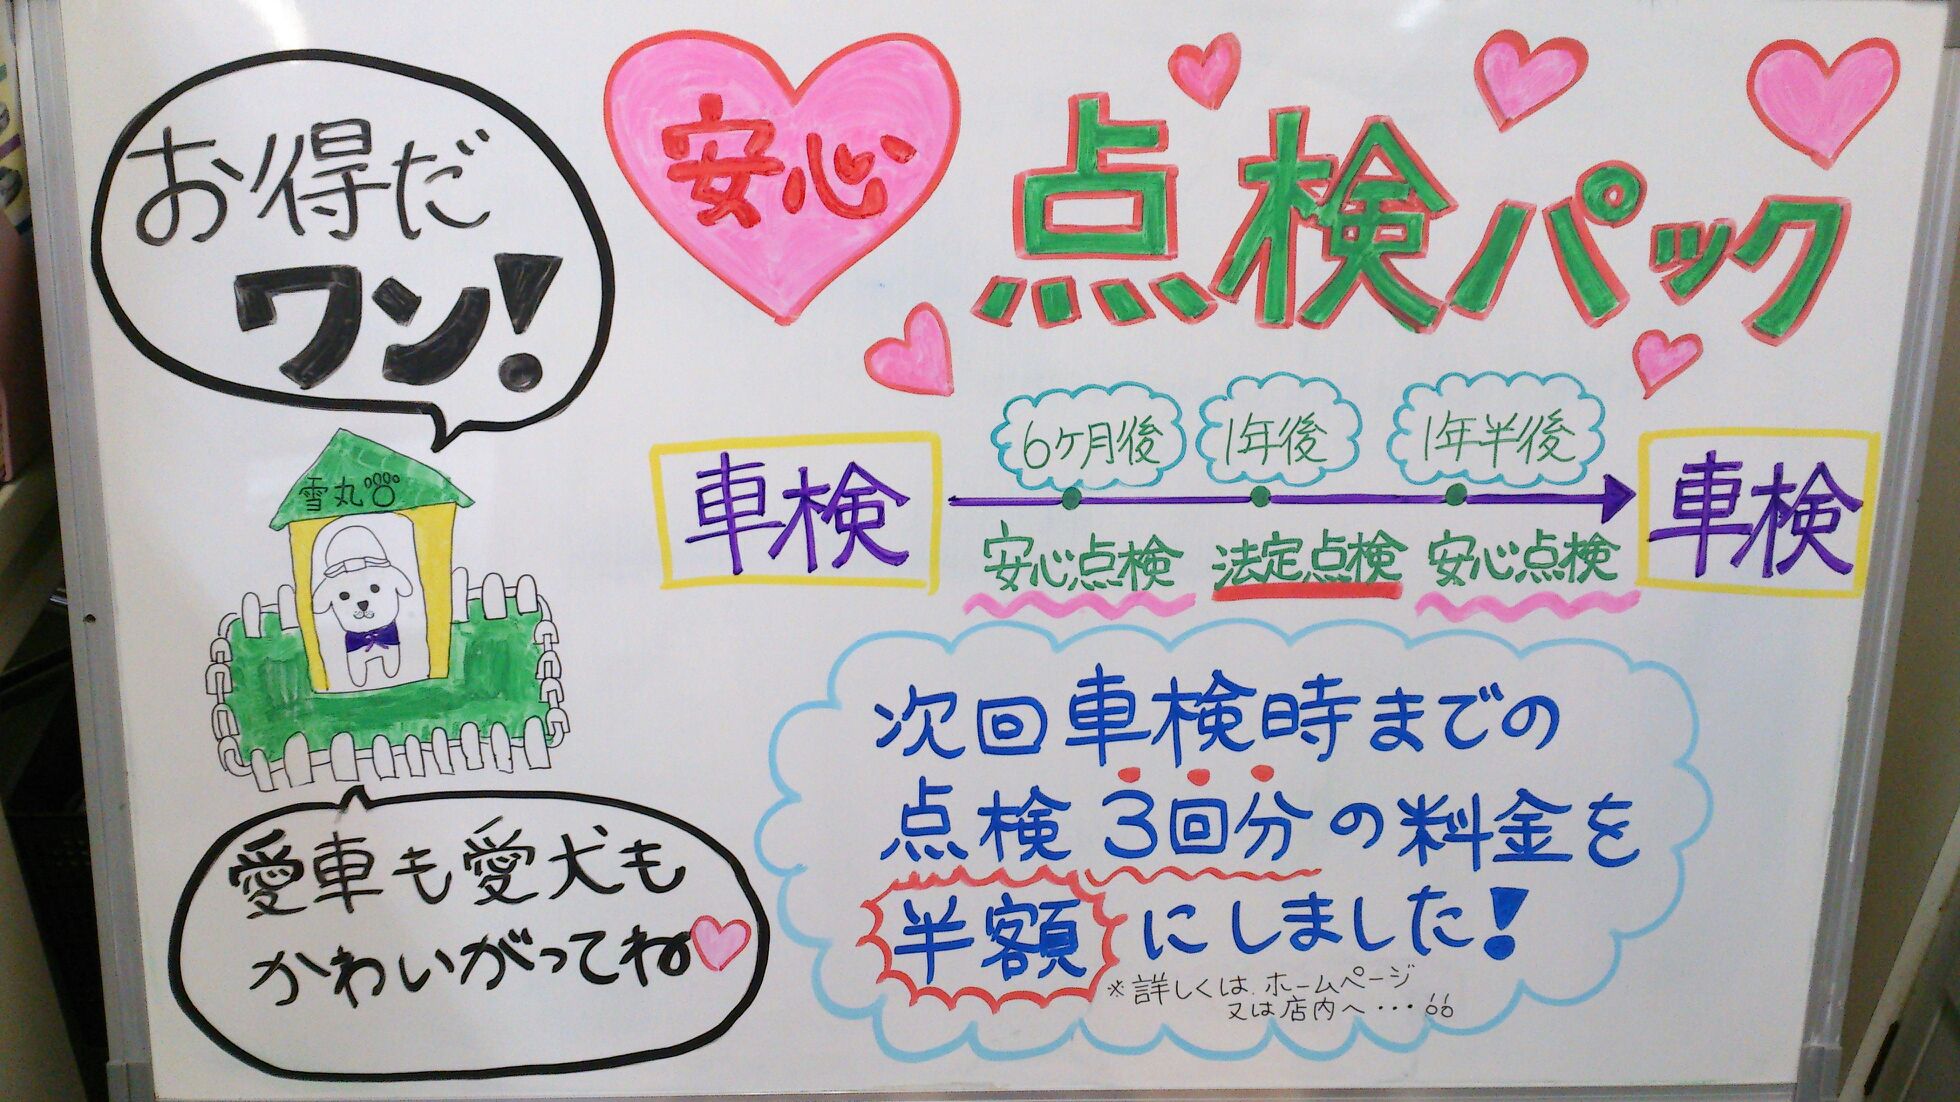 お得だ
ワン!
安心
点検パック
雪丸
車検
6ヶ月後
1年後
1年半後
車検
安心点検
法定点検
安心点検
次回車検時までの
点検3回分の料金を
半額にしました!
※詳しくは、ホームページ
又は店内へ・・・
愛車も愛犬も
かわいがってね